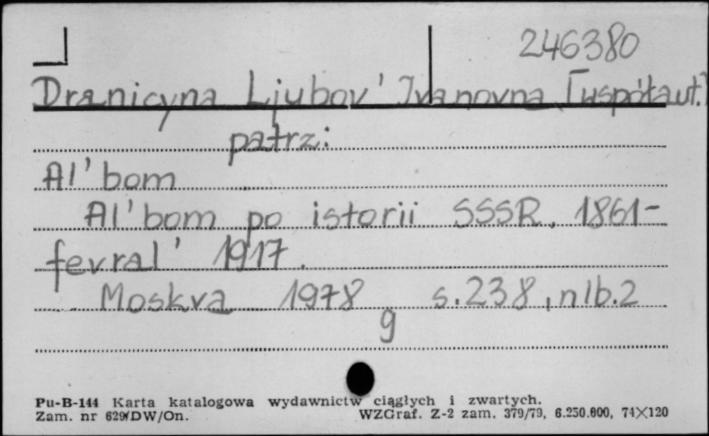 246380
Dranicyna Ljubov' Ivanovna [współaut.]
patrz:
Al'bom
Al'bom po istorii SSSR. 1861-
fevral' 1917.
Moskva 1978 s.238, nlb.2
g
Pu-B-144 Karta katalogowa wydawnictw ciągłych i zwartych.
Zam. nr 629/DW/On. WZGraf. Z-2 zam. 379/79, 6.250.000, 74×120